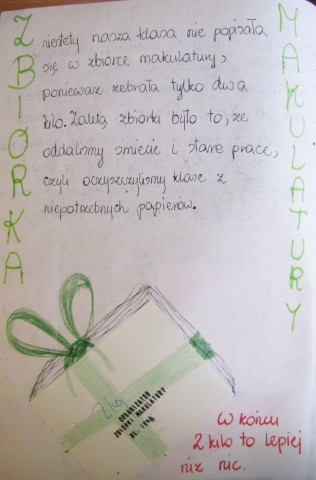 ZBIÓRKA
MAKULATURY
niestety nasza klasa nie popisała
się w zbiórce makulatury,
ponieważ zebrała tylko dwa
kilo. Zaletą zbiórki było to, że
oddaliśmy śmiecie i stare prace,
czyli oczyszczyliśmy klasę z
niepotrzebnych papierów.
2 kg
ORGANIZATOR
ZBIÓRKI MAKULATURY
W końcu
2 kilo to lepiej
niż nic.